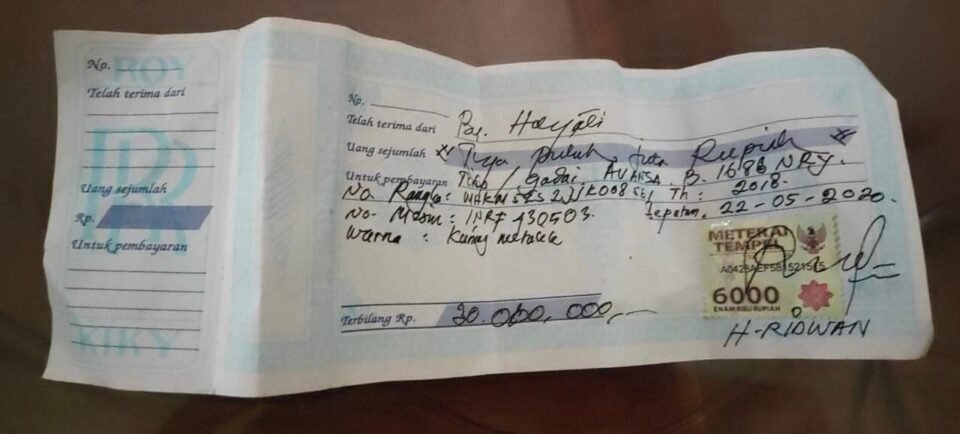 No.
ROY
Telah terima dari
Uang sejumlah
Rp.
Untuk pembayaran
KIKY
No.
Telah terima dari Hayati
Uang sejumlah Tiga puluh juta Rupiah
Untuk pembayaran / gadai AVANSA. B. 1686 NRY.
No. Rangka: Th: 2018.
No. Mesin: 1NRF 430503. 22-05-2020.
Warna : Kuning metalik
METERAI
TEMPEL
6000
ENAM RIBU RUPIAH
Terbilang Rp. 30.000,000,-
H-RIDWAN